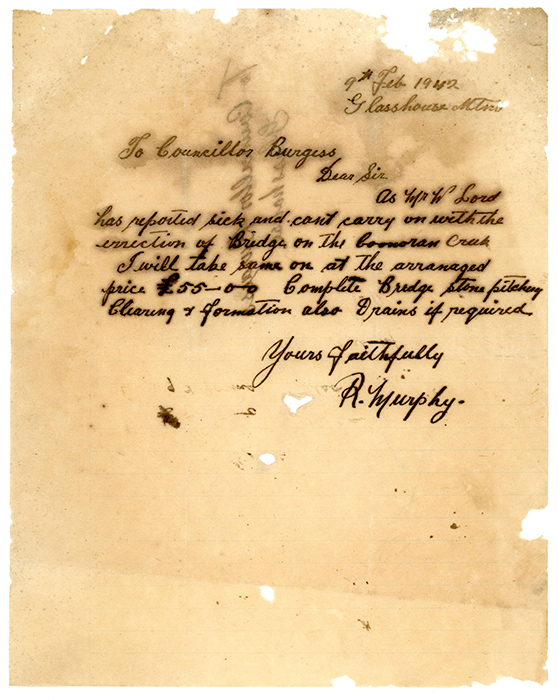 9th Feb 1942
Glasshouse Mtns
To Councillor Burgess
Dear Sir
As Mr W Lord
has reported sick and cant carry on with the
errection of Bridge on the Coonoran Creek
I will take same on at the arranaged
price £55-0-0 Complete Bridge stone pitching
Clearing & formation also Drains if required
Yours Faithfully
R. Murphy.